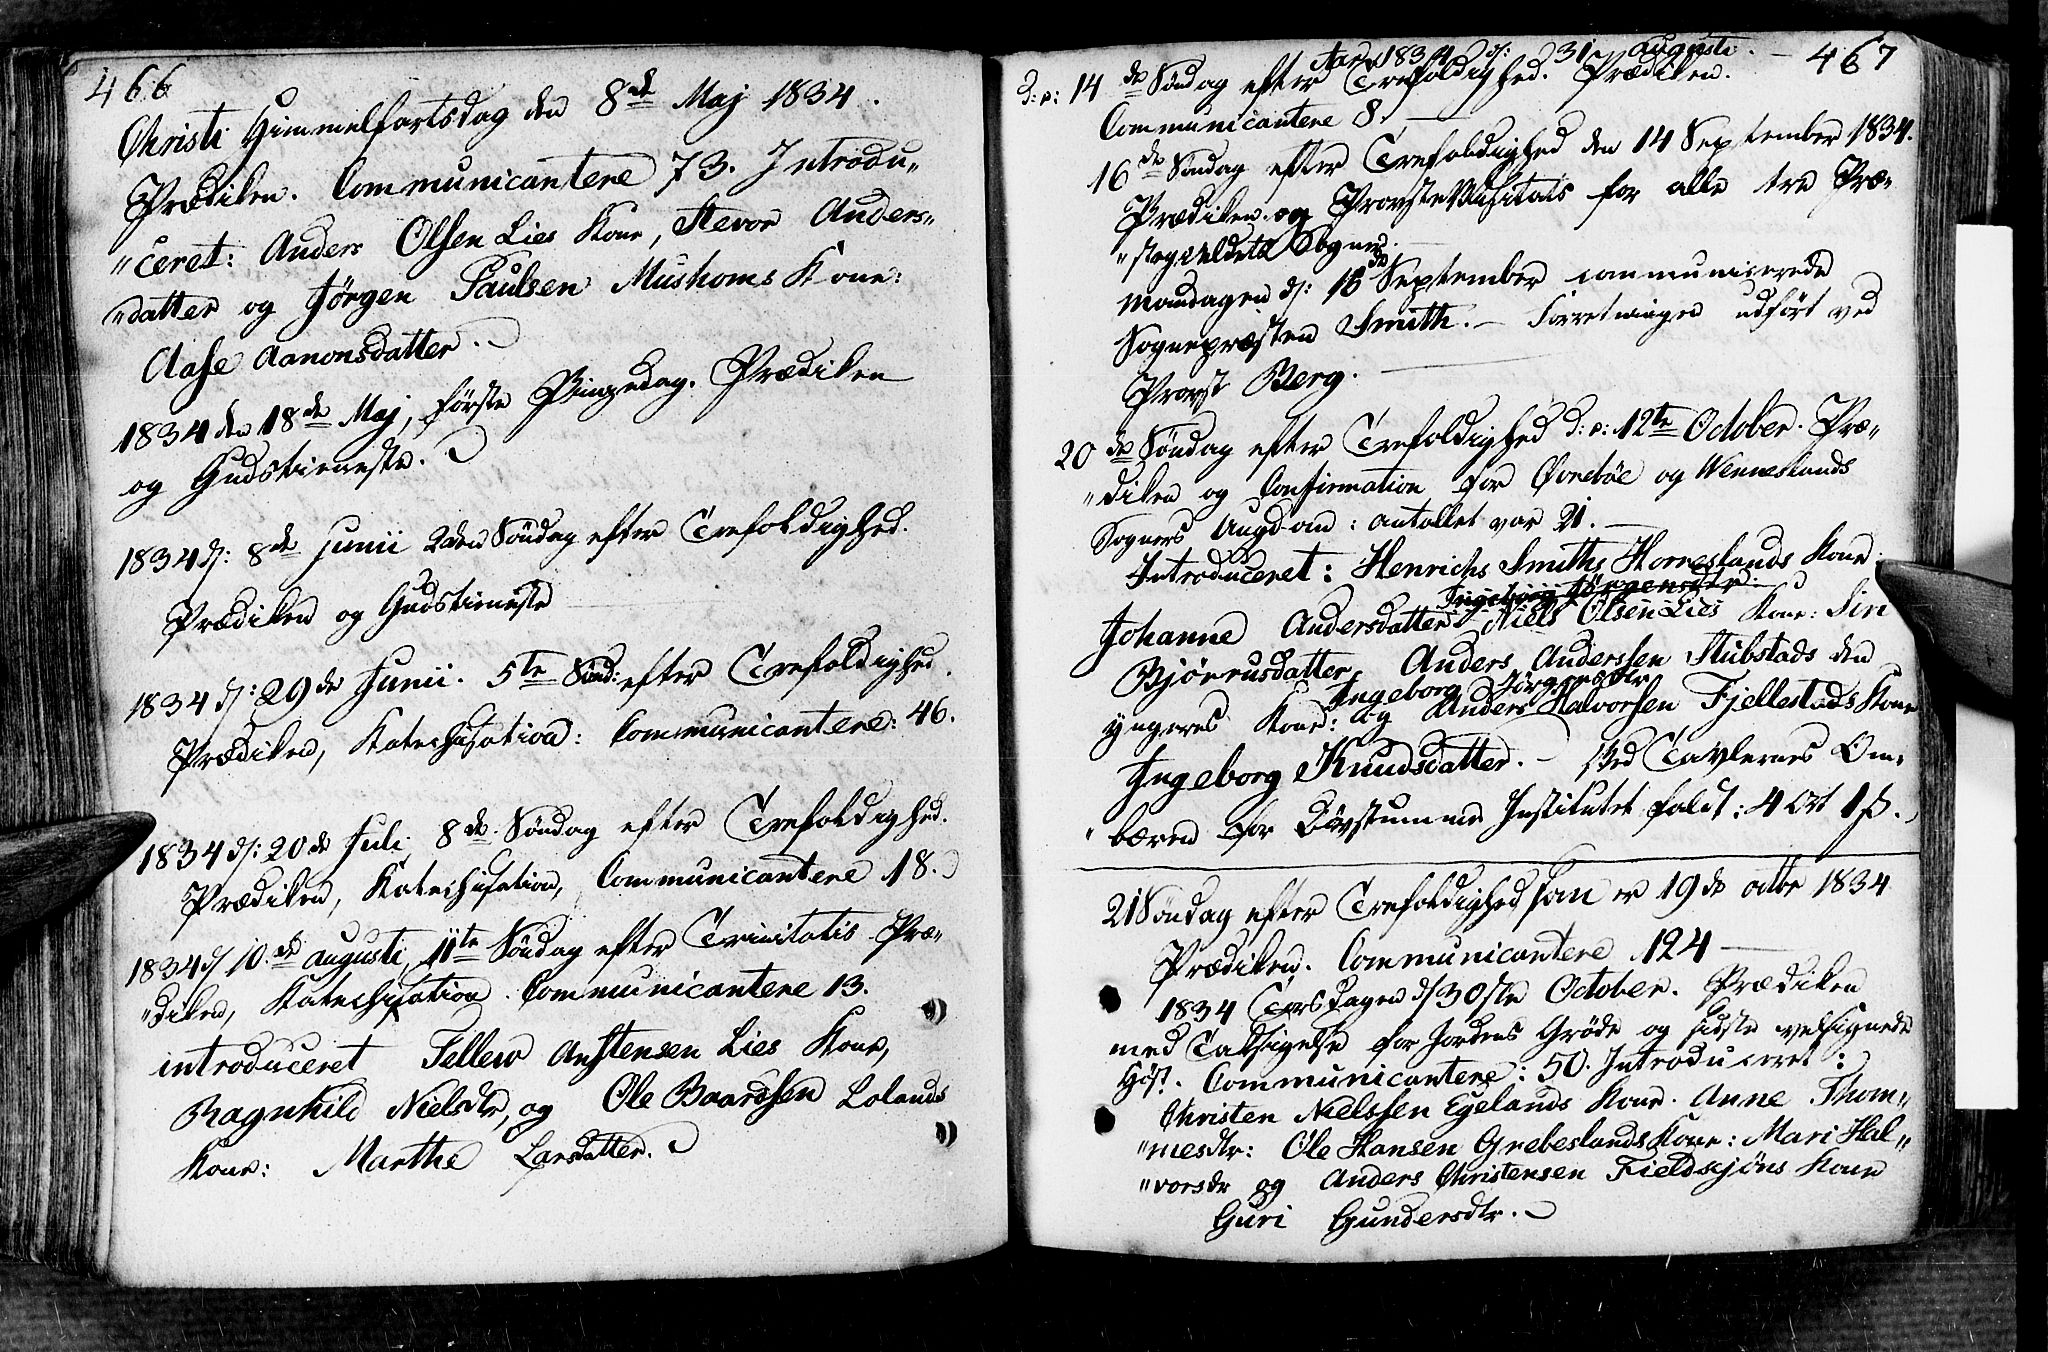 466
Christi Himmelfartsdag den 8de Maj 1834.
Prædiken. Communicantere 73. Introdu„
„ceret: Anders Olsen Lies Kone, Stevor Anders„
„datter og Jörgen Paulsen Mushoms Kone:
Aase Aanonsdatter.
1834 den 18de Maj, förste Pingsedag. Prædiken
og Gudstieneste.
1834 d: 8de Junii 2den Söndag efter Trefoldighed.
Prædiken og Gudstieneste
1834 d: 29de Junii. 5te Sönd: efter Trefoldighed.
Prædiken, Katechisation: Communicantere: 46.
1834 d: 20de Juli 8de Söndag efter Trefoldighed.
Prædiken, Katechisation, Communicantere 18.
1834 d 10de augusti, 11te Söndag efter Trinitatis Præ„
„diken, Katechisation. Communicantere 13.
introduceret Tellew Anstensen Lies Kone,
Ragnhild Nielsdtr, og Ole Baardsen Lolands
Kone: Marthe Larsdatter.
467
Aar 1834 d: 31 augusti.
D: e: 14de Söndag efter Trefoldighed. Prædiken.
Communicantere 8.
16de Söndag efter Trefoldighed den 14 September 1834.
Prædiken og ProvsteVisitais for alle tre Præ„
„stegieldets Sogne.
Mandagen d: 15de September communicerede
Sognepræsten Smith. Forretningen udfört ved
Provst Berg.
20de Söndag efter Trefoldighed D: e: 12te October. Præ„
„diken og Confirmation for Övreböe og Wenneslands
Sogners Ungdom: antallet var 21.
Introduceret: Henrichs Smiths Horreslands Kone:
Ingeborg Jörgensdtr.
Johanne Andersdatter Niels Olsen Lies Kone: Siri
Björnusdatter, Anders Anderssen Stubstads den
Ingeborg Jörgensdtr
yngeres Kone: og Anders Halvorsen Fjellestads Kone
Ingeborg Knudsdatter. Ved Tavlernes Om„
„bæren for Dövstumme Institutet faldt: 4 Ort 1 ß.
21 Söndag efter Trefoldighed som er 19de octbr 1834
Prædiken. Communicantere 124
1834 Torsdagen d 30ste October. Prædiken
med Taksigelse for Jordens Gröde og sidste velsignede
Höst. Communicantere: 50. Introduceret:
Christen Nielssen Egelands Kone. Anne Thom„
„mesdtr: Ole Hansen Grebeslands Kone: Mari Hal„
„vorsdr og Anders Christensen Fieldsjöns Kone
Guri Gundersdtr.